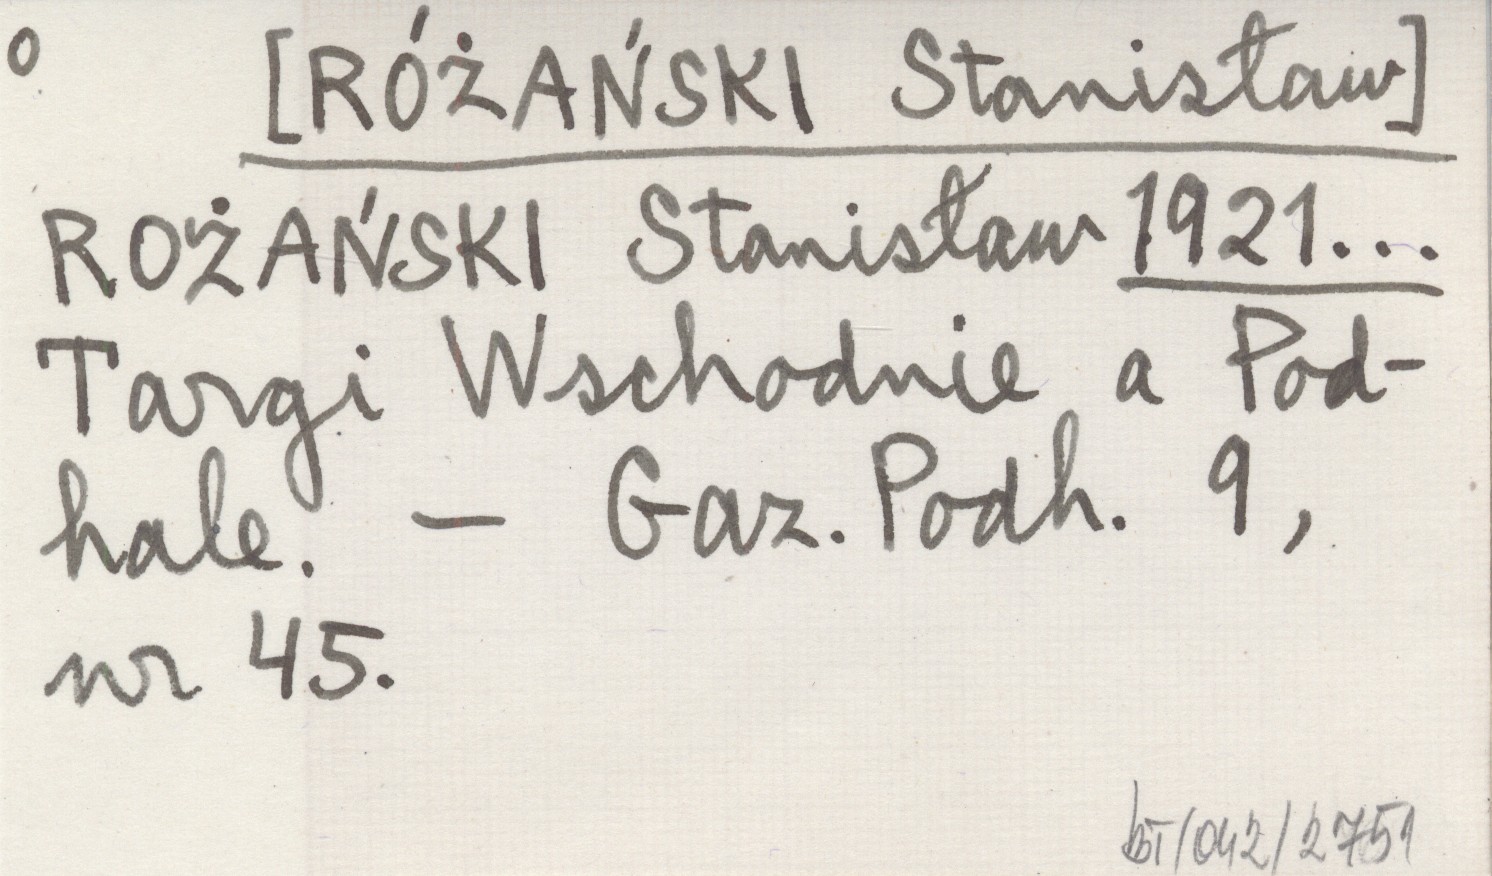 o [RÓŻAŃSKI Stanisław]
ROŻAŃSKI Stanisław 1921...
Targi Wschodnie a Pod-
hale. — Gaz. Podh. 9,
nr 45.
bT/042/2751